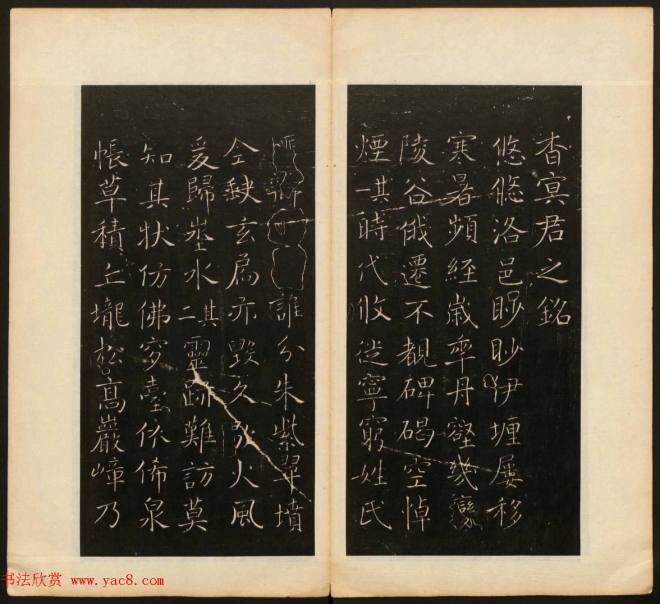 杳冥君之銘
悠悠洛邑眇眇伊瀍屢移
寒暑頻經歲率丹壑幾變
陵谷俄遷不覩碑碣空悼
煙 其一時代攸徙寧窮姓氏
誰分朱紫翠墳
全缺玄扃亦毀久閟火風
爰歸坐水 其二靈跡難訪莫
知其狀仿佛穸臺依俙泉
帳草積丘壠松高巖嶂乃
书法欣赏 www.yac8.com